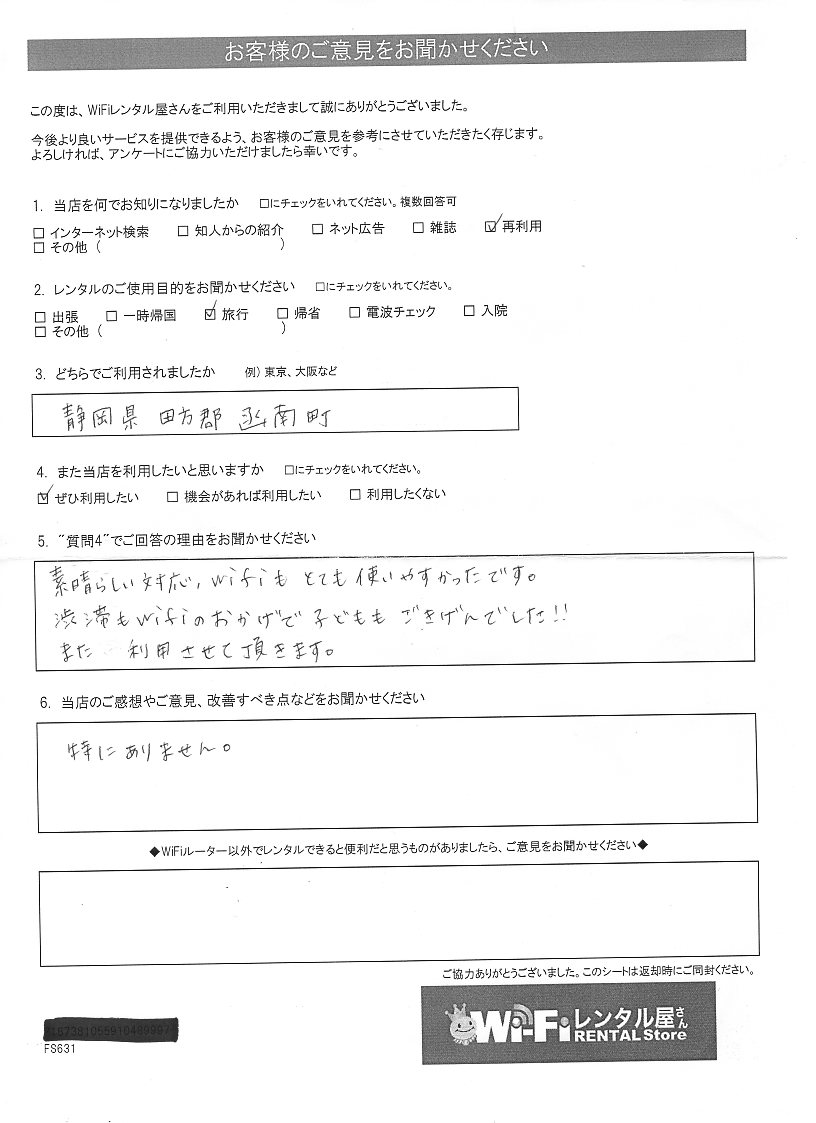 お客様のご意見をお聞かせください
この度は、WiFiレンタル屋さんをご利用いただきまして誠にありがとうございました。
今後より良いサービスを提供できるよう、お客様のご意見を参考にさせていただきたく存じます。
よろしければ、アンケートにご協力いただけましたら幸いです。
1. 当店を何でお知りになりましたか □にチェックをいれてください。複数回答可
□ インターネット検索 □ 知人からの紹介 □ ネット広告 □ 雑誌 ☑ 再利用
□ その他 ( )
2. レンタルのご使用目的をお聞かせください □にチェックをいれてください。
□ 出張 □ 一時帰国 ☑ 旅行 □ 帰省 □ 電波チェック □ 入院
□ その他 ( )
3. どちらでご利用されましたか 例) 東京、大阪など
静岡県 田方郡 函南町
4. また当店を利用したいと思いますか □にチェックをいれてください。
☑ ぜひ利用したい □ 機会があれば利用したい □ 利用したくない
5. “質問4”でご回答の理由をお聞かせください
素晴らしい対応、wifiも とても使いやすかったです。
渋滞もwifiのおかげで子どもも ごきげんでした!!
また 利用させて頂きます。
6. 当店のご感想やご意見、改善すべき点などをお聞かせください
特にありません。
◆WiFiルーター以外でレンタルできると便利だと思うものがありましたら、ご意見をお聞かせください◆
ご協力ありがとうございました。このシートは返却時にご同封ください。
Wi-Fiレンタル屋さん
RENTAL Store
FS631